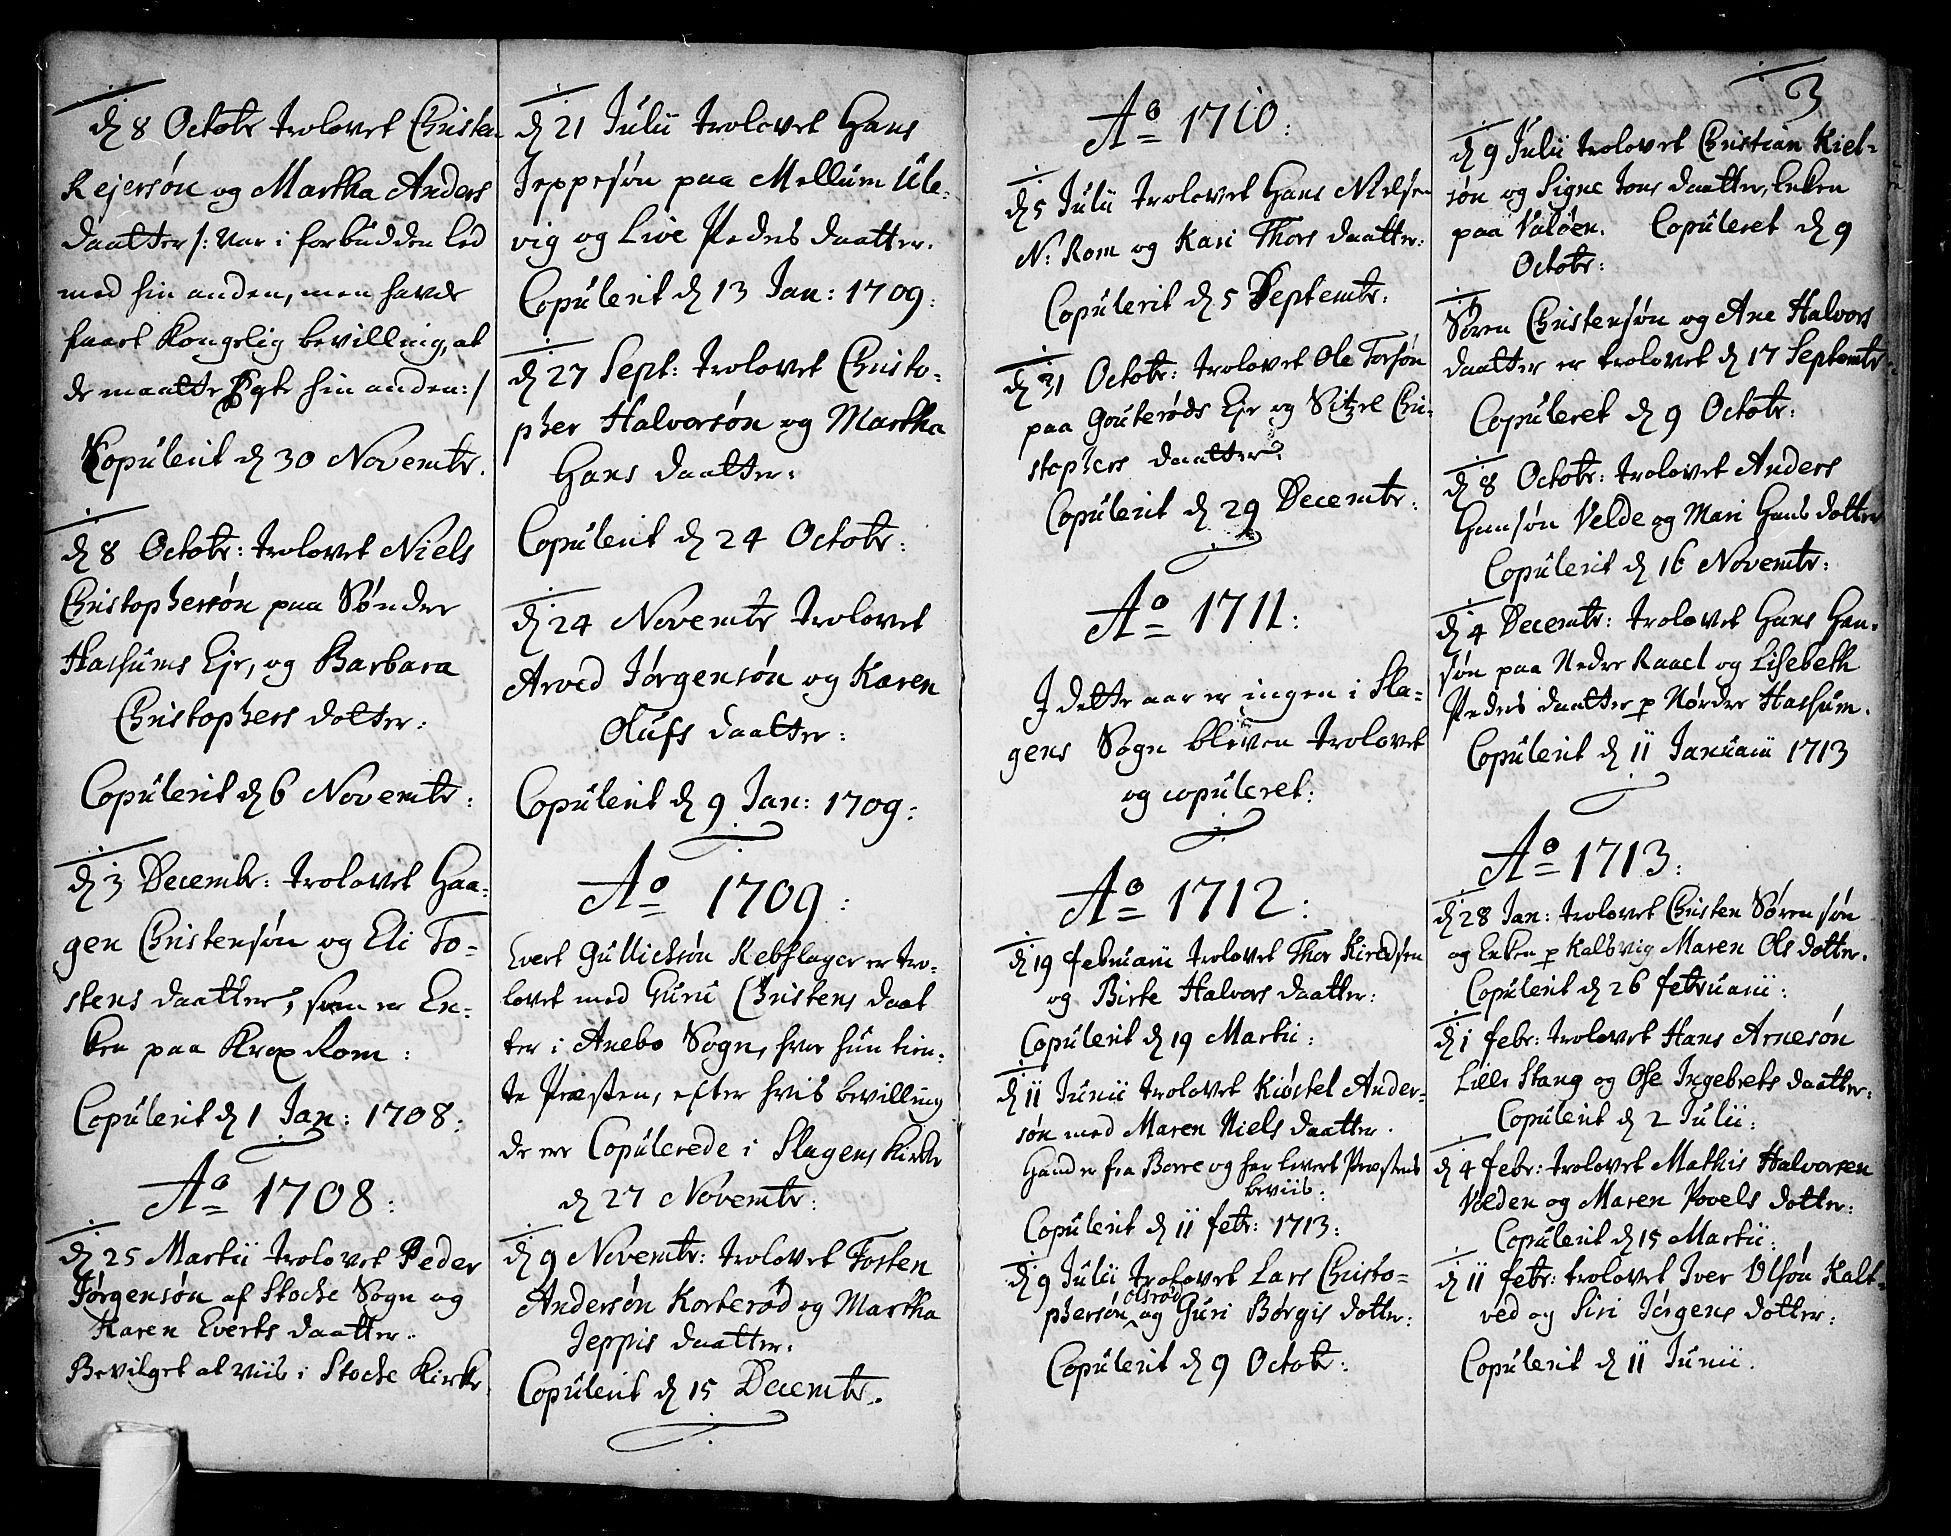 d 8 Octobr trolovet Christen
Rejersøn og Martha Anders
daatter /: var i forbudden led
med hin anden, men havde
faaet Kongelig bevilling, at
de maatte Egte hin anden :/
Copulerit d 30 Novembr.
d 8 Octobr: trolovet Niels
Christophersøn paa Sønder
Hassums Eje, og Barbara
Christophers dotter:
Copulerit d 6 Novembr:
d 3 Decembr: trolovet Haa-
gen Christensøn og Eli To-
stens daatter, som er En-
ken paa Krop Rom:
Copulerit d 1 Jan: 1708:
Ao 1708:
d 25 Martii trolovet Peder
Jørgensøn af Stocke Sogn og
Karen Everts daatter:
Bevilget at vies i Stocke Kirke
d 21 Julii trolovet Hans
Jeppesøn paa Mellum Ule-
vig og Live Peders daatter.
Copulerit d 13 Jan: 1709:
d 27 Sept: trolovet Christo-
pher Halvorsøn og Martha
Hans daatter:
Copulerit d 24 Octobr:
d 24 Novembr trolovet
Arved Jørgensøn og Karen
Olufs daatter:
Copulerit d 9 Jan: 1709:
Ao 1709:
Evert Gullichsøn Rebslager er tro-
lovet med Guru Christens daat
ter i Anebo Sogn, hvor hun tien-
te Præsten, efter hvis bevilling
de ere Copulerede i Slagens Kirke
d 27 Novembr:
d 9 Novembr: trolovet Tosten
Andersøn Korterød og Martha
Jeppis daatter:
Copulerit d 15 Decembr.
3
Ao 1710:
d 5 Julii trolovet Hans Nielsen
N: Rom og Kari Thors daatter:
Copulerit d 5 Septembr:
d 31 Octobr: trolovet Ole Torsøn
paa Gouterøds Eje og Sitzel Chri-
stophers daatter:
Copulerit d 29 Decembr:
Ao 1711:
I dette aar er ingen i Sla-
gens Sogn bleven trolovet
og copuleret:
Ao 1712:
d 19 Februarii trolovet Thor
og Birte Halvors daatter:
Copulerit d 19 Martii:
d 11 Junii trolovet Kiøstel Ander-
søn med Maren Niels daatter.
Hand er fra Borre og har levert Præstens
beviis:
Copulerit d 11 febr: 1713:
d 9 Julii trolovet Lars Christo-
olsrød
phersøn og Guri Børgis dotter:
Copulerit d 9 Octobr:
d 9 Julii trolovet Christian Kiel-
søn og Signe Jons daatter, Enken
paa Valøen. Copuleret d 9
Octobr:
Søren Christensøn og Ane Halvors
daatter er trolovet d 17 Septembr:
Copuleret d 9 Octobr:
d 8 Octobr: trolovet Anders
Hansøn Velde og Mari Hans dotter
Copulerit d 16 Novembr:
d 4 Decembr: trolovet Hans Han-
søn paa Nedre Raael og Lisebeth
Peders daatter p Nørdre Hassum.
Copulerit d 11 Januarii 1713
Ao 1713:
d 28 Jan: trolovet Christen Sørensøn
og Enken p Kalsvig Maren Ols dotter.
Copulerit d 26 februarii:
d 1 febr: trolovet Hans Arnesøn
Lille Stang og Ose Ingebrets daatter:
Copulerit d 2 Julii:
d 4 febr: trolovet Mathis Halvorsen
Velden og Maren Povels dotter:
Copulerit d 15 Martii:
d 11 febr: trolovet Iver Olsøn Kalt-
ved og Siri Jørgens dotter:
Copulerit d 11 Junii.